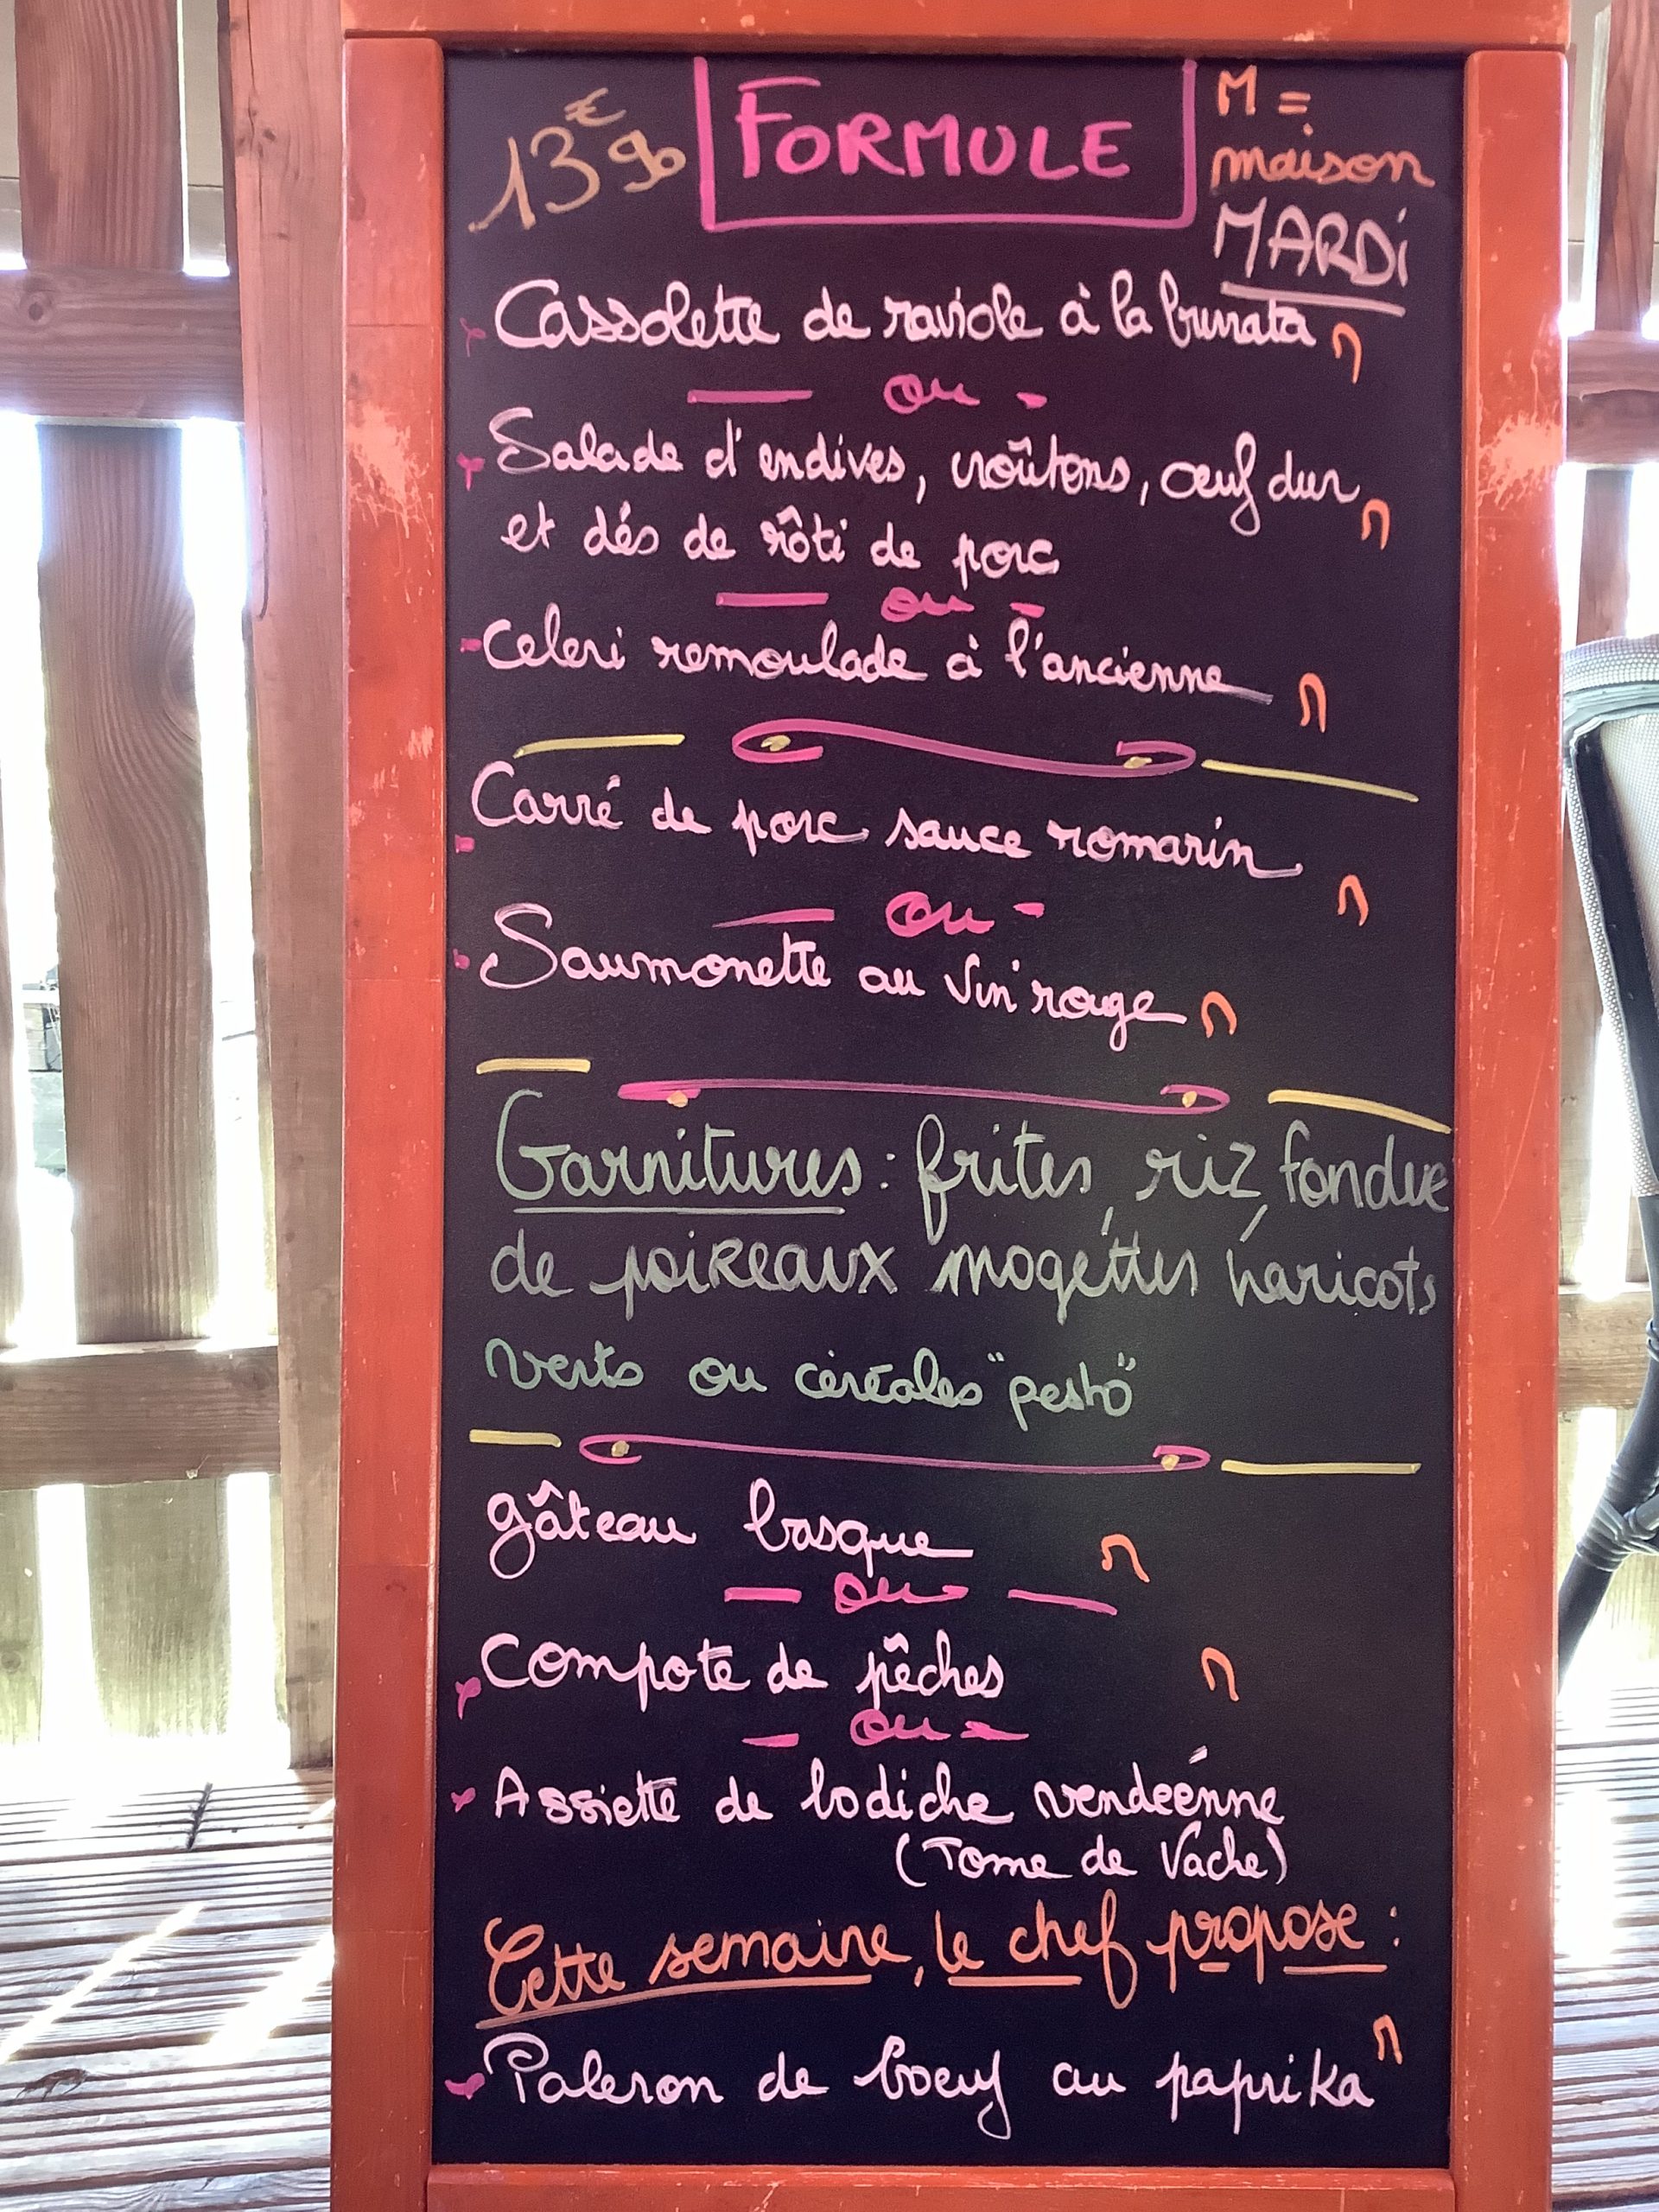 13€90 FORMULE
M =
maison
MARDi
Cassolette de raviole à la burrata n
ou
Salade d'endives, croûtons, œuf dur, n
et dés de rôti de porc
ou
Celeri remoulade à l'ancienne n
Carré de porc sauce romarin n
ou
Saumonette au vin rouge n
Garnitures : frites, riz, fondue
de poireaux mogettes haricots
verts ou céréales "pesto"
gâteau basque n
ou
Compote de pêches n
ou
Assiette de lodiche vendéenne
(Tome de Vache)
Cette semaine, le chef propose :
Paleron de boeuf au paprika n